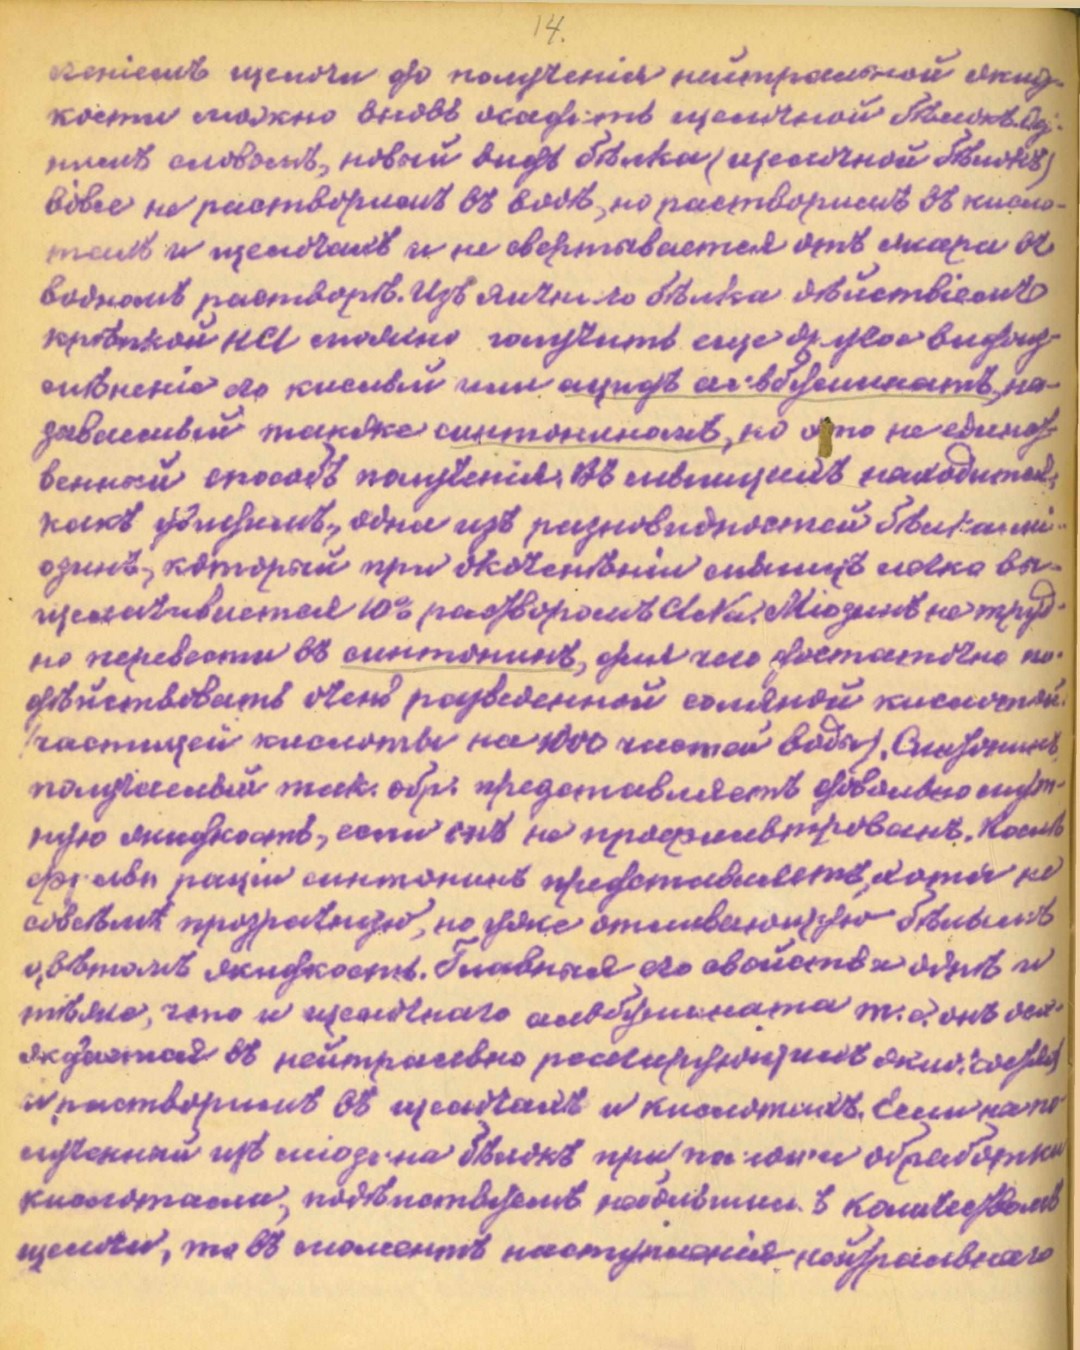 14.
леніемъ щелочи до полученія нейтральной жид-
кости можно вновь осадить щелочной бѣлокъ. Од-
нимъ словомъ, новый видъ бѣлка (щелочной бѣлокъ)
вовсе не растворимъ въ водѣ, но растворимъ въ кисло-
тахъ и щелочахъ и не свертывается отъ жара въ
водномъ растворѣ. Изъ яичнаго бѣлка дѣйствіемъ
крѣпкой HCl можно получить еще другое видоиз-
мѣненіе его кислый или ацидъ альбуминатъ, на-
зываемый также синтониномъ, но это не единст-
венный способъ полученія. Въ мышцахъ находится,
какъ увидимъ, одна изъ разновидностей бѣлка мі-
озинъ, который при окоченѣніи мышцъ легко вы-
щелачивается 10% растворомъ ClNa. Міозинъ не труд-
но перевести въ синтонинъ, для чего достаточно по-
дѣйствовать очень разведенной соляной кислотой
кислоты на 1000 частей воды). Синтонинъ,
получаемый так. обр. представляетъ довольно мут-
ную жидкость, если онъ не профильтрованъ. Послѣ
фильтраціи синтонинъ представляетъ, хотя не
совсѣмъ прозрачную, но уже отливающую бѣлымъ
цвѣтомъ жидкость. Главныя его свойства однѣ и
тѣже, что и щелочнаго альбумината т.е. онъ оса-
ждается въ нейтрально реагирующихъ жид.
и растворимъ въ щелочахъ и кислотахъ. Если на по-
лученный изъ міозина бѣлокъ при помощи обработки
кислотами, подѣйствуемъ небольшимъ количествомъ
щелочи, то въ моментъ наступленія нейтральнаго